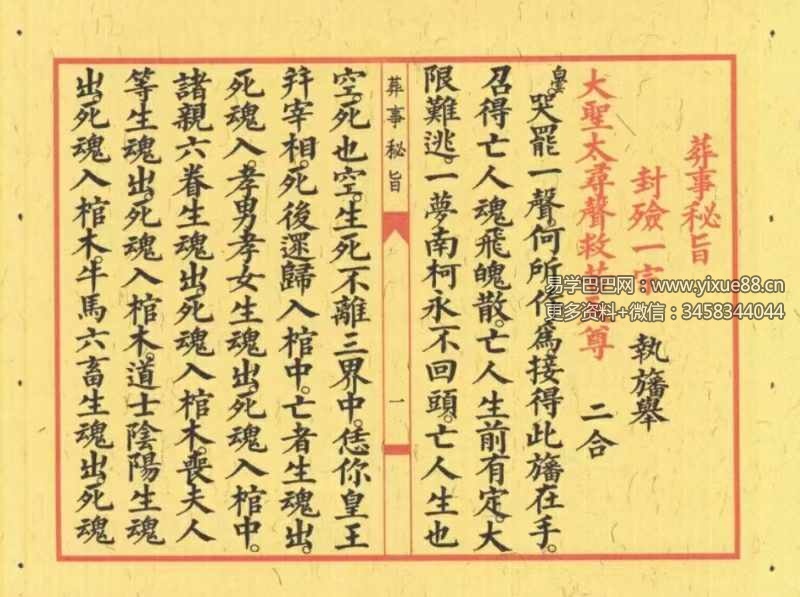 葬事秘旨
封殮一宗 執旛舉
大聖太尋聲救苦天尊 二合
哭罷一聲。何所作爲接得此旛在手。
召得亡人魂飛魄散。亡人生前有定。大
限難逃。一夢南柯永不回頭。亡人生也
葬事秘旨 一
空。死也空。生死不離三界中。恁你皇王
幷宰相。死後還歸入棺中。亡者生魂出。
死魂入。孝男孝女生魂出。死魂入棺中。
諸親六眷生魂出。死魂入棺木。喪夫人
等生魂出。死魂入棺木。道士陰陽生魂
出。死魂入棺木。牛馬六畜生魂出。死魂
易学巴巴网：www.yixue88.cn
更多资料+微信：3458344044